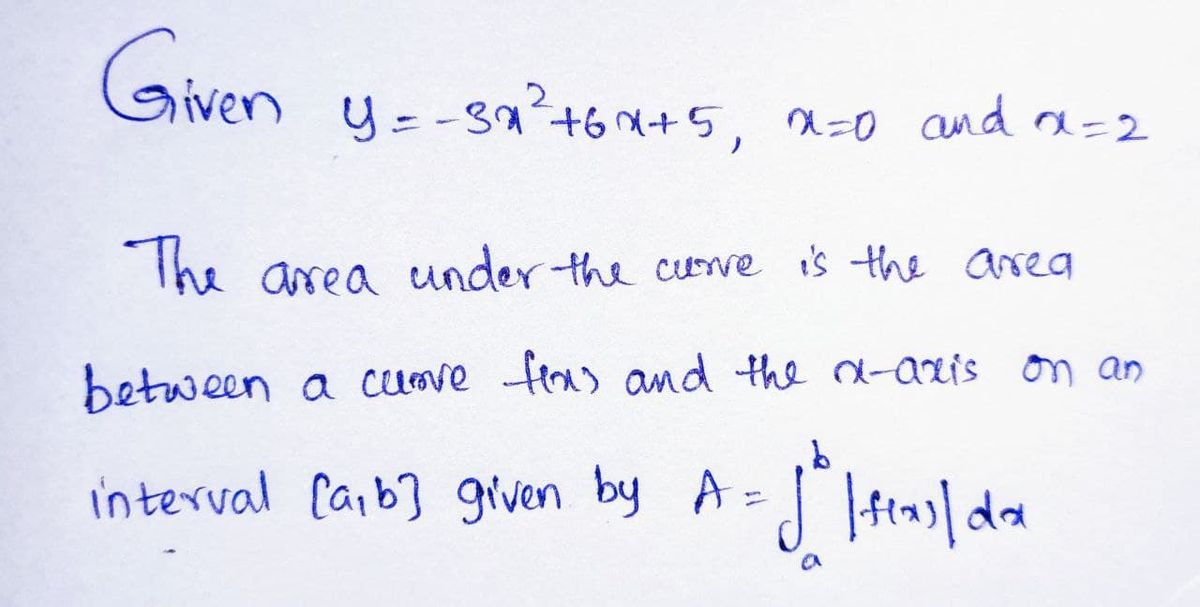 Given y = -3x²+6x+5, x=0 and x=2
The area under the curve is the area
between a curve f(x) and the x-axis on an
interval [a,b] given by A = ∫ₐᵇ |f(x)| dx